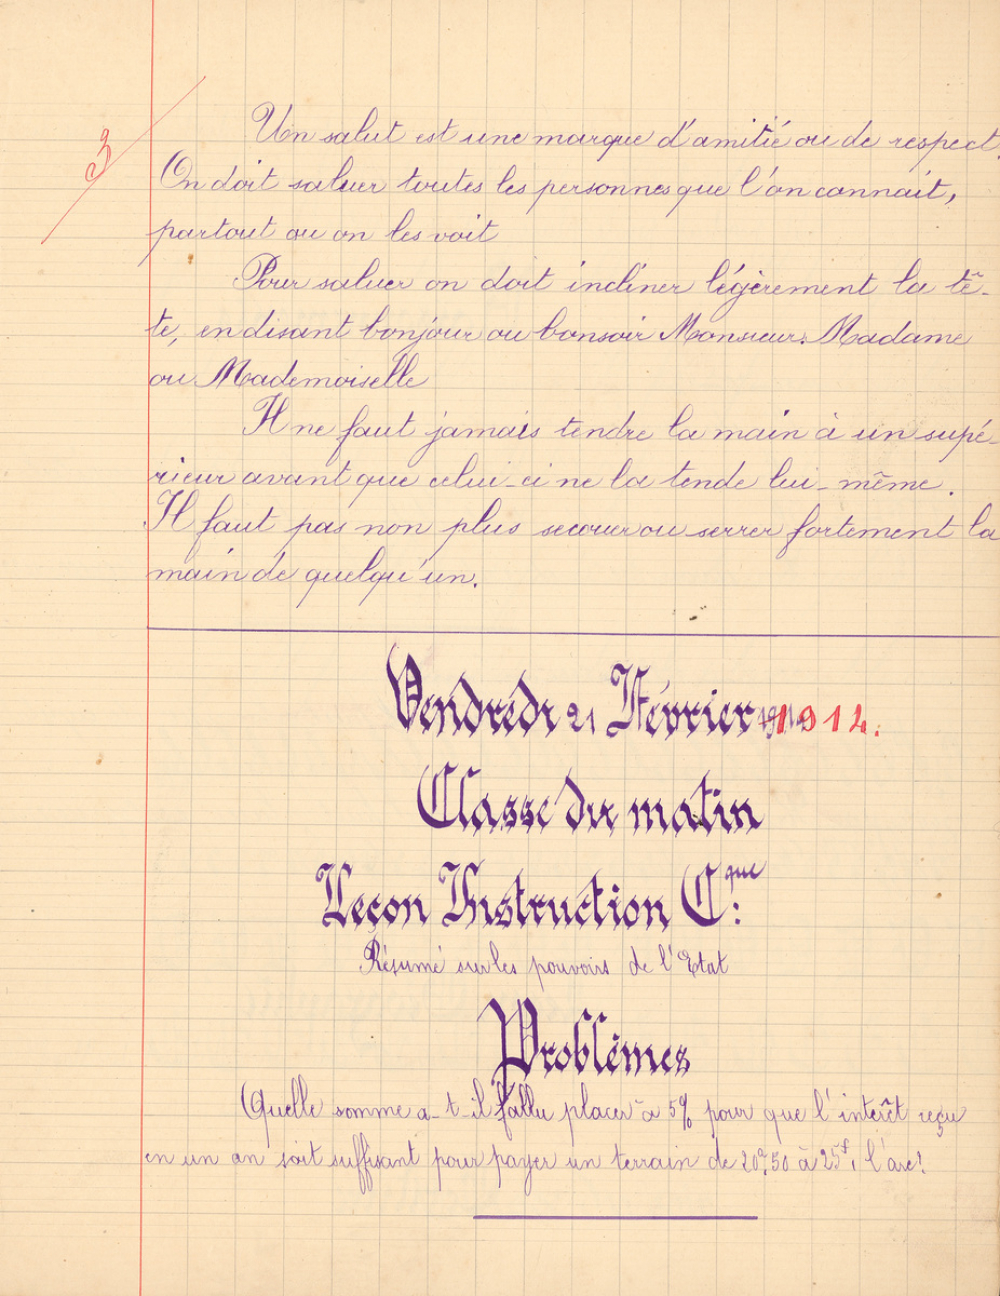 3
Un salut est une marque d'amitié ou de respect.
On doit saluer toutes les personnes que l'on connait,
partout ou on les voit
Pour saluer on doit incliner légèrement la tê-
te, en disant bonjour ou bonsoir Monsieur. Madame
ou Mademoiselle
Il ne faut jamais tendre la main à un supé-
rieur avant que celui-ci ne la tende lui-même.
Il faut pas non plus secouer ou serrer fortement la
main de quelqu'un.
Vendredi 21 Février 1912.
Classe du matin
Leçon Instruction Cque:
Résumé sur les pouvoirs de l'Etat
Problèmes
Quelle somme a-t-il fallu placer à 5% pour que l'interêt reçu
en un an soit suffisant pour payer un terrain de 20a,50 à 25f, l'are?